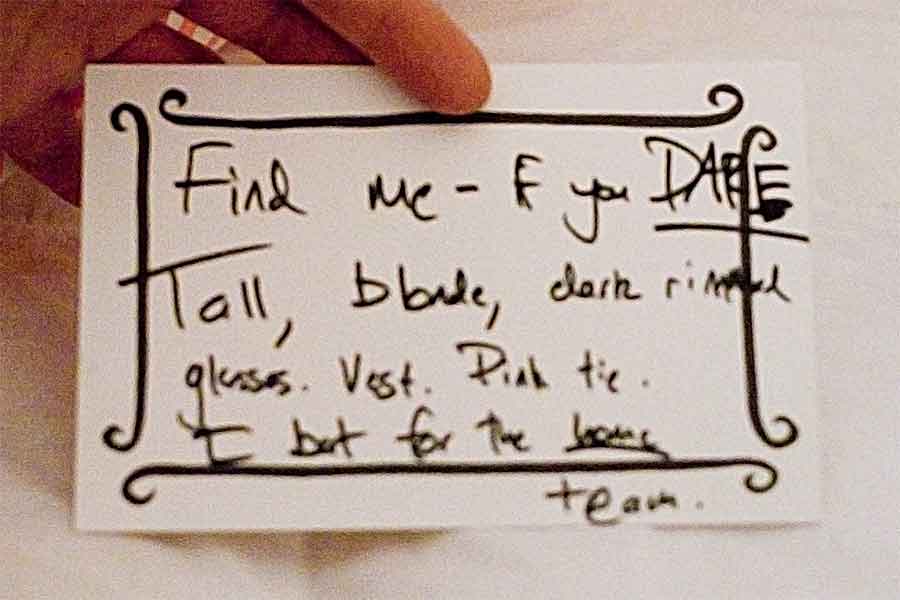 Find me - If you DARE
Tall, blonde, dark rimmed
glasses. Vest. Pink tie.
I bat for the home
team.